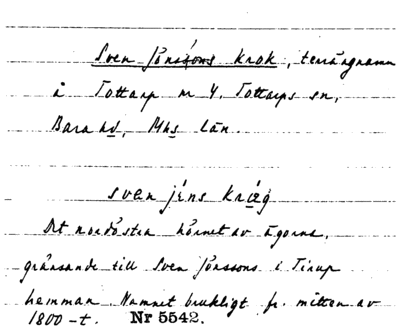 Sven Jönssons Krok, terrängnamn
å Tottarp nr 4, Tottarps sn,
Bara hd, Mhs län.
sven jéns
Det nordöstra hörnet av ägorna,
gränsande till Sven Jönssons i Tirup
hemman. Namnet brukligt fr. mitten av
1800-t. Nr 5542.